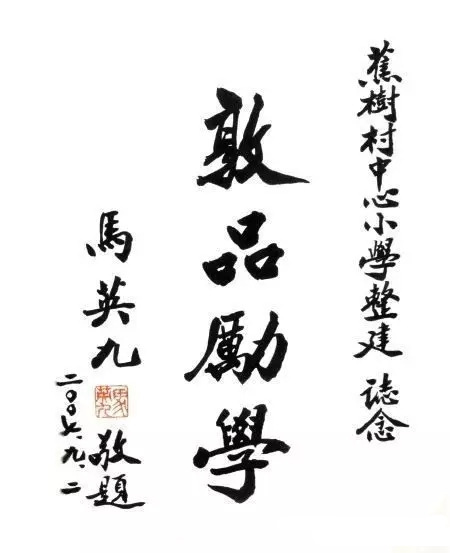 蕉樹村中心小學整建 誌念
敦品勵學
馬英九 敬題
馬英九
二〇〇六.九.二